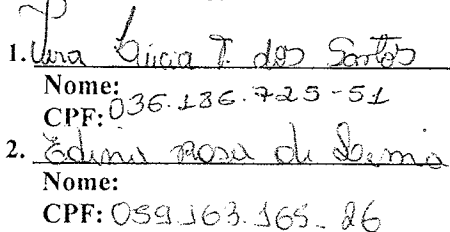 1. Vera Lúcia T. dos Santos
Nome:
CPF: 036.186.725-51
2. Edina Rosa de Lima
Nome:
CPF: 059.163.165-26